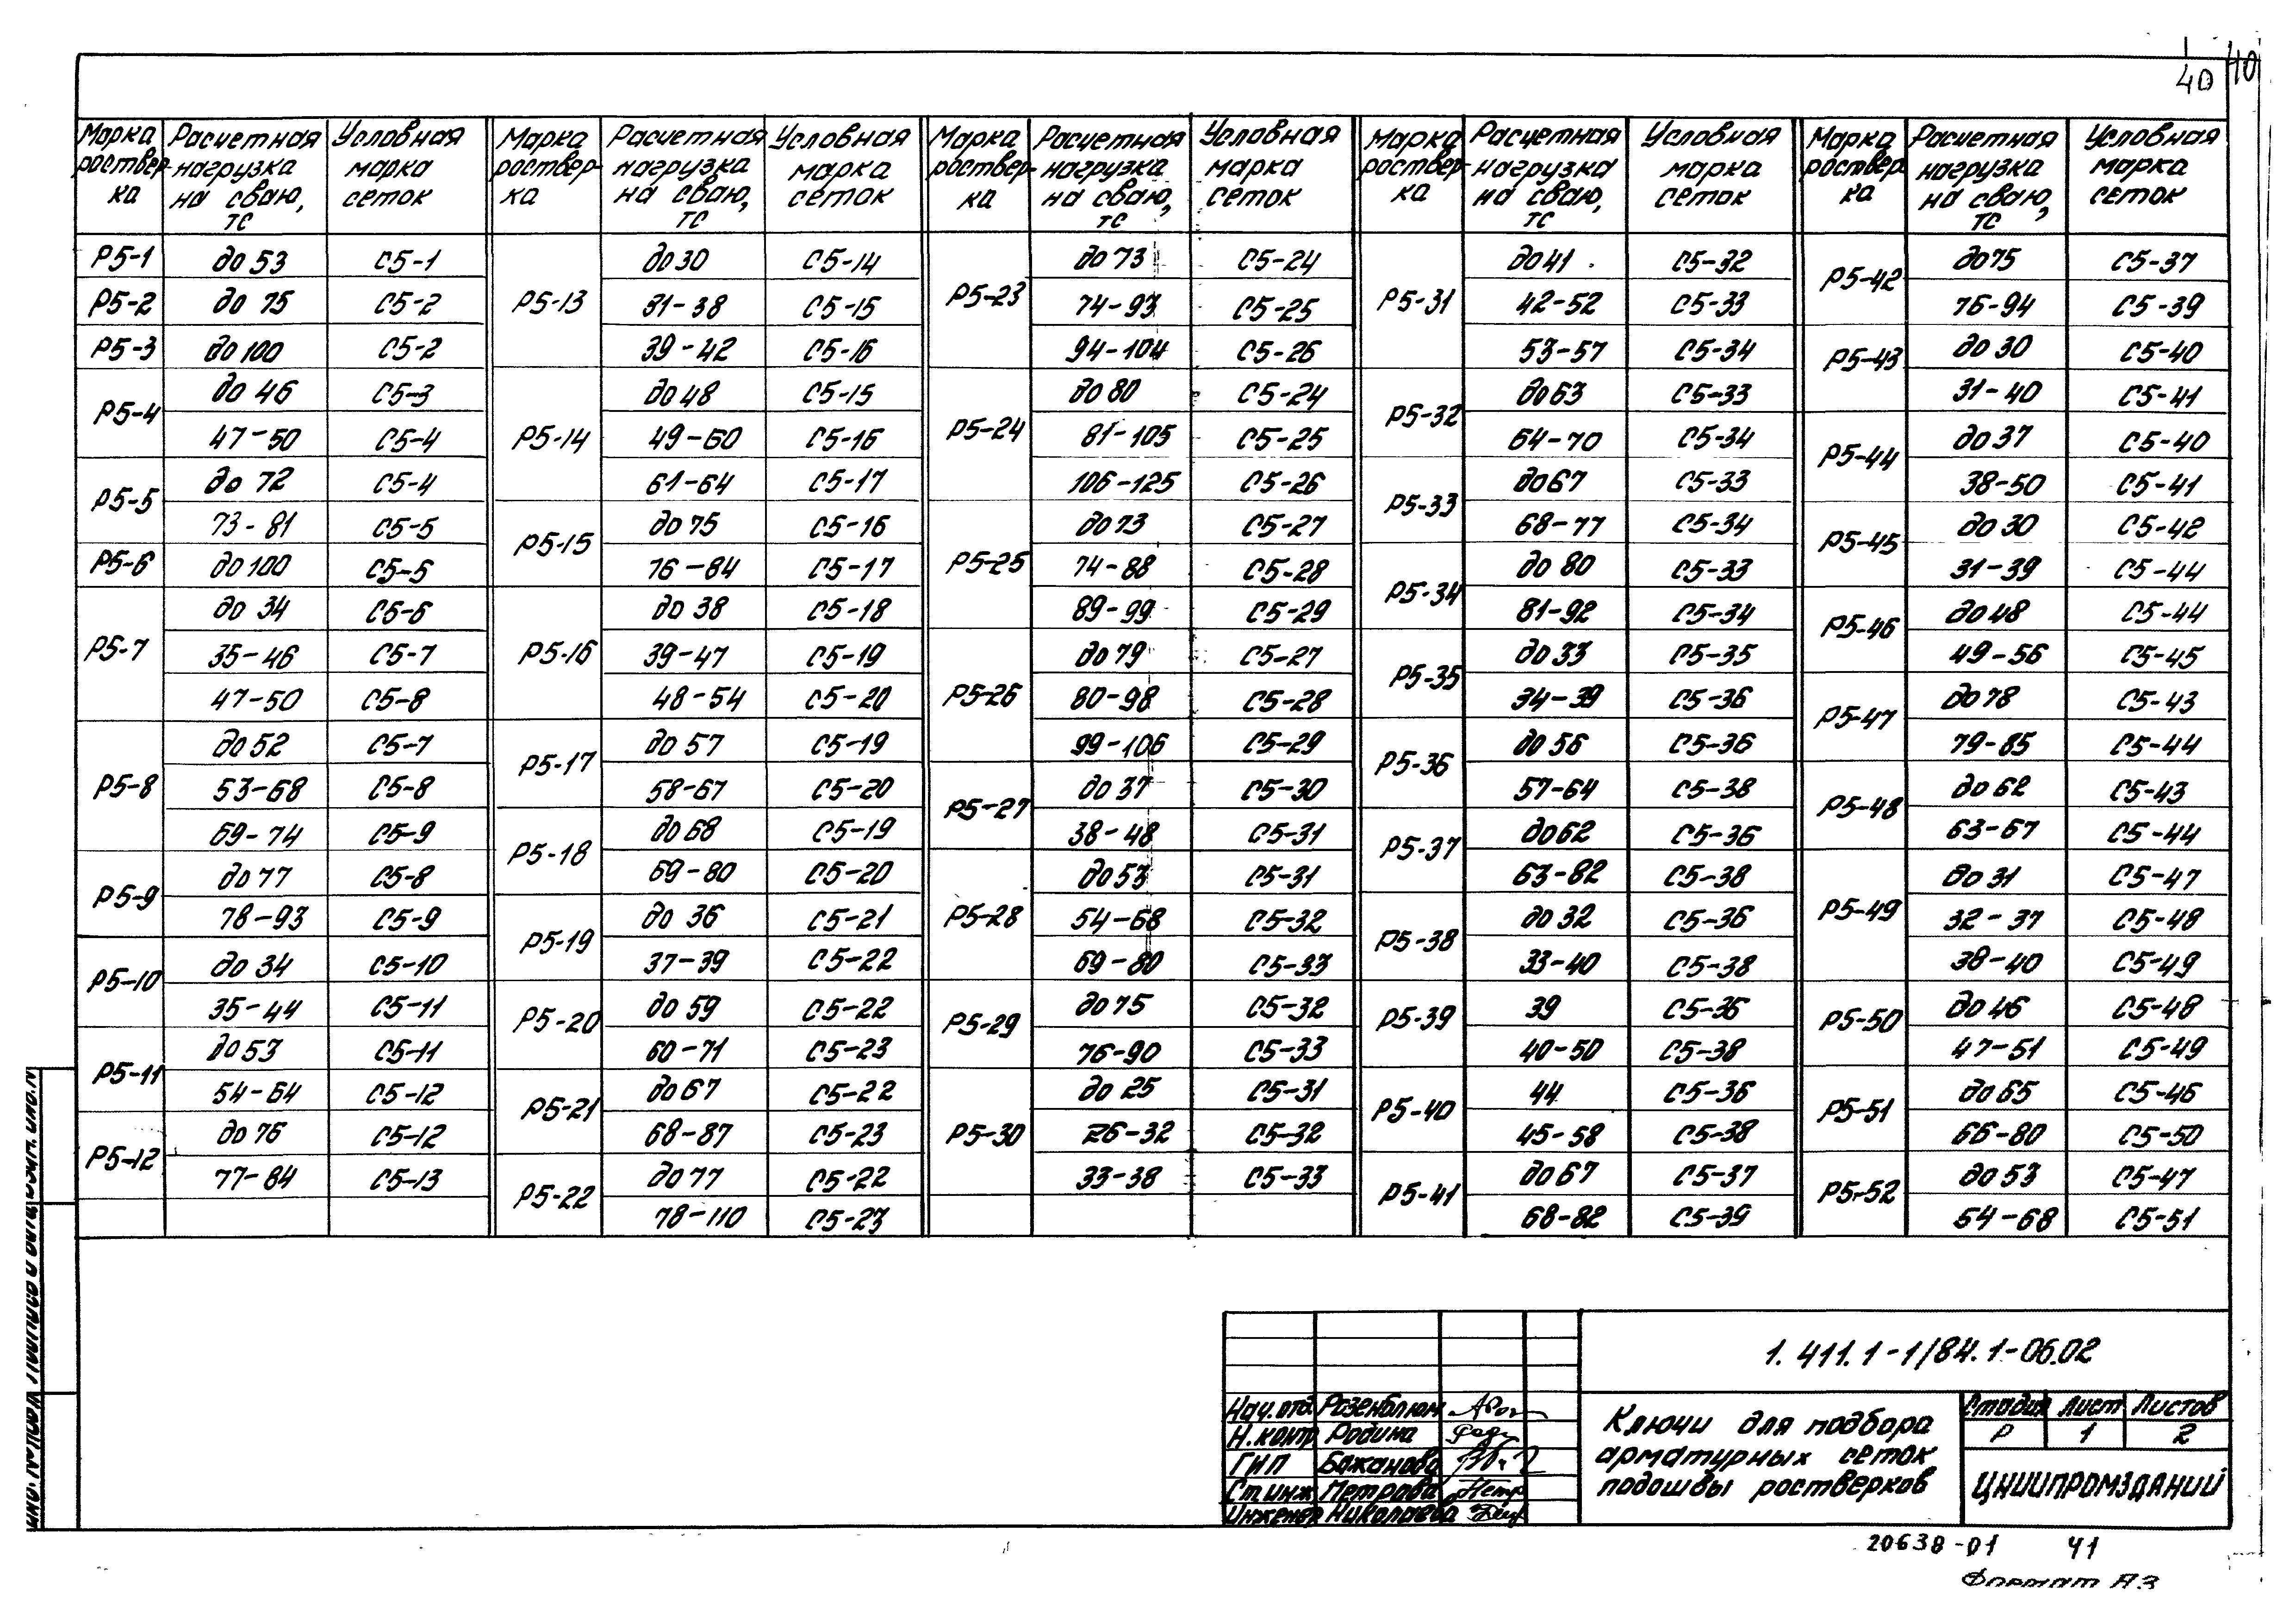 40
40
Марка ростверка | Расчетная нагрузка на сваю, тс | Условная марка сеток
Р5-1 | до 53 | С5-1
Р5-2 | до 75 | С5-2
Р5-3 | до 100 | С5-2
Р5-4 | до 46 | С5-3
47-50 | С5-4
Р5-5 | до 72 | С5-4
73-81 | С5-5
Р5-6 | до 100 | С5-5
Р5-7 | до 34 | С5-6
35-46 | С5-7
47-50 | С5-8
Р5-8 | до 52 | С5-7
53-68 | С5-8
69-74 | С5-9
Р5-9 | до 77 | С5-8
78-93 | С5-9
Р5-10 | до 34 | С5-10
35-44 | С5-11
Р5-11 | до 53 | С5-11
54-64 | С5-12
Р5-12 | до 76 | С5-12
77-84 | С5-13
Марка ростверка | Расчетная нагрузка на сваю, тс | Условная марка сеток
Р5-13 | до 30 | С5-14
31-38 | С5-15
39-42 | С5-16
Р5-14 | до 48 | С5-15
49-60 | С5-16
61-64 | С5-17
Р5-15 | до 75 | С5-16
76-84 | С5-17
Р5-16 | до 38 | С5-18
39-47 | С5-19
48-54 | С5-20
Р5-17 | до 57 | С5-19
58-67 | С5-20
Р5-18 | до 68 | С5-19
69-80 | С5-20
Р5-19 | до 36 | С5-21
37-39 | С5-22
Р5-20 | до 59 | С5-22
60-71 | С5-23
Р5-21 | до 67 | С5-22
68-87 | С5-23
Р5-22 | до 77 | С5-22
78-110 | С5-23
Марка ростверка | Расчетная нагрузка на сваю, тс | Условная марка сеток
Р5-23 | до 73 | С5-24
74-93 | С5-25
94-104 | С5-26
Р5-24 | до 80 | С5-24
81-105 | С5-25
106-125 | С5-26
Р5-25 | до 73 | С5-27
74-88 | С5-28
89-99 | С5-29
Р5-26 | до 79 | С5-27
80-98 | С5-28
99-106 | С5-29
Р5-27 | до 37 | С5-30
38-48 | С5-31
Р5-28 | до 53 | С5-31
54-68 | С5-32
69-80 | С5-33
Р5-29 | до 75 | С5-32
76-90 | С5-33
Р5-30 | до 25 | С5-31
26-32 | С5-32
33-38 | С5-33
Марка ростверка | Расчетная нагрузка на сваю, тс | Условная марка сеток
Р5-31 | до 41 | С5-32
42-52 | С5-33
53-57 | С5-34
Р5-32 | до 63 | С5-33
64-70 | С5-34
Р5-33 | до 67 | С5-33
68-77 | С5-34
Р5-34 | до 80 | С5-33
81-92 | С5-34
Р5-35 | до 33 | С5-35
34-39 | С5-36
Р5-36 | до 56 | С5-36
57-64 | С5-38
Р5-37 | до 62 | С5-36
63-82 | С5-38
Р5-38 | до 32 | С5-36
33-40 | С5-38
Р5-39 | 39 | С5-36
40-50 | С5-38
Р5-40 | 44 | С5-36
45-58 | С5-38
Р5-41 | до 67 | С5-37
68-82 | С5-39
Марка ростверка | Расчетная нагрузка на сваю, тс | Условная марка сеток
Р5-42 | до 75 | С5-37
76-94 | С5-39
Р5-43 | до 30 | С5-40
31-40 | С5-41
Р5-44 | до 37 | С5-40
38-50 | С5-41
Р5-45 | до 30 | С5-42
31-39 | С5-44
Р5-46 | до 48 | С5-44
49-56 | С5-45
Р5-47 | до 78 | С5-43
79-85 | С5-44
Р5-48 | до 62 | С5-43
63-67 | С5-44
Р5-49 | до 31 | С5-47
32-37 | С5-48
38-40 | С5-49
Р5-50 | до 46 | С5-48
47-51 | С5-49
Р5-51 | до 65 | С5-46
66-80 | С5-50
Р5-52 | до 53 | С5-47
54-68 | С5-51
1.411.1-1/84.1-06.02
Нач.отд. Розенблюм
Н.контр Родина
ГИП Бажанова
Ст.инж Петрова
Инженер Николаева
Ключи для подбора
арматурных сеток
подошвы ростверков
Стадия Лист Листов
Р 1 2
ЦНИИПРОМЗДАНИЙ
20638-01 41
Формат А3